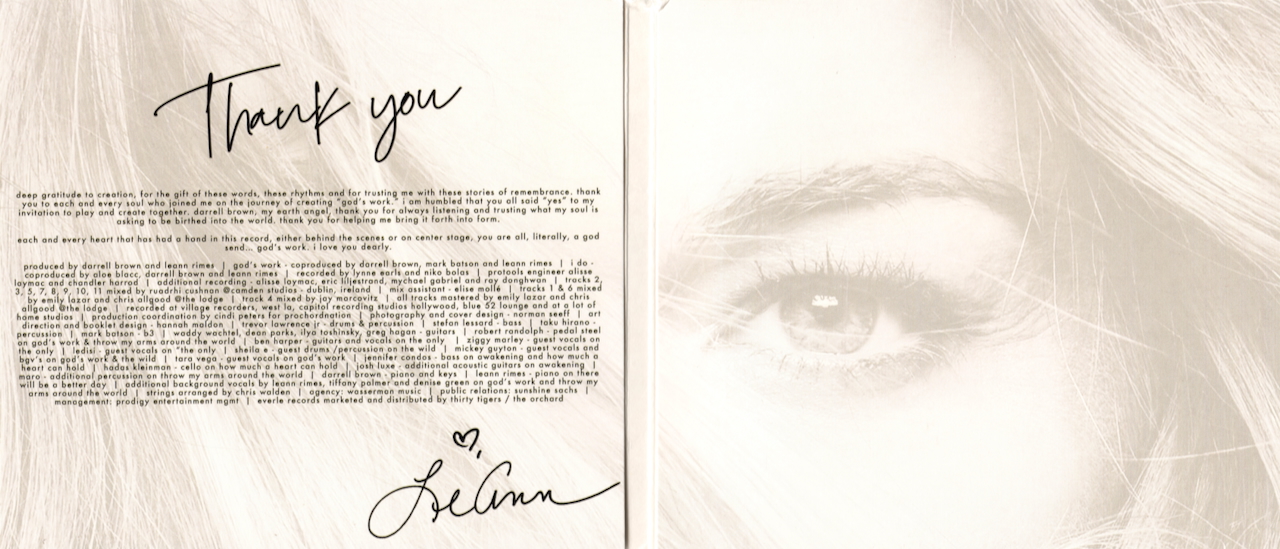 Thank you
deep gratitude to creation, for the gift of these words, these rhythms and for trusting me with these stories of remembrance. thank
you to each and every soul who joined me on the journey of creating "god's work." i am humbled that you all said "yes" to my
invitation to play and create together. darrell brown, my earth angel, thank you for always listening and trusting what my soul is
asking to be birthed into the world. thank you for helping me bring it forth into form.
each and every heart that has had a hand in this record, either behind the scenes or on center stage, you are all, literally, a god
send... god's work. i love you dearly.
produced by darrell brown and leann rimes | god's work - coproduced by darrell brown, mark batson and leann rimes | i do -
coproduced by aloe blacc, darrell brown and leann rimes | recorded by lynne earls and niko bolas | protools engineer alisse
laymac and chandler harrod | additional recording - alisse laymac, eric liljestrand, mychael gabriel and ray donghwan | tracks 2,
3, 5, 7, 8, 9, 10, 11 mixed by ruadhri cushnan @camden studios - dublin, ireland | mix assistant - elise mollé | tracks 1 & 6 mixed
by emily lazar and chris allgood @the lodge | track 4 mixed by jay marcovitz | all tracks mastered by emily lazar and chris
allgood @the lodge | recorded at village recorders, west la, capitol recording studios hollywood, blue 52 lounge and at a lot of
home studios | production coordination by cindi peters for prochordnation | photography and cover design - norman seeff | art
direction and booklet design - hannah maldon | trevor lawrence jr - drums & percussion | stefan lessard - bass | taku hirano -
percussion | mark batson - b3 | waddy wachtel, dean parks, ilya toshinsky, greg hagan - guitars | robert randolph - pedal steel
on god's work & throw my arms around the world | ben harper - guitars and vocals on the only | ziggy marley - guest vocals on
the only | ledisi - guest vocals on "the only | sheila e - guest drums /percussion on the wild | mickey guyton - guest vocals and
bgv's on god's work & the wild | tara vega - guest vocals on god's work | jennifer condos - bass on awakening and how much a
heart can hold | hadas kleinman - cello on how much a heart can hold | josh luxe - additional acoustic guitars on awakening |
maro - additional percussion on throw my arms around the world | darrell brown - piano and keys | leann rimes - piano on there
will be a better day | additional background vocals by leann rimes, tiffany palmer and denise green on god's work and throw my
arms around the world | strings arranged by chris walden | agency: wasserman music | public relations: sunshine sachs |
management: prodigy entertainment mgmt | everle records marketed and distributed by thirty tigers / the orchard
LeAnn